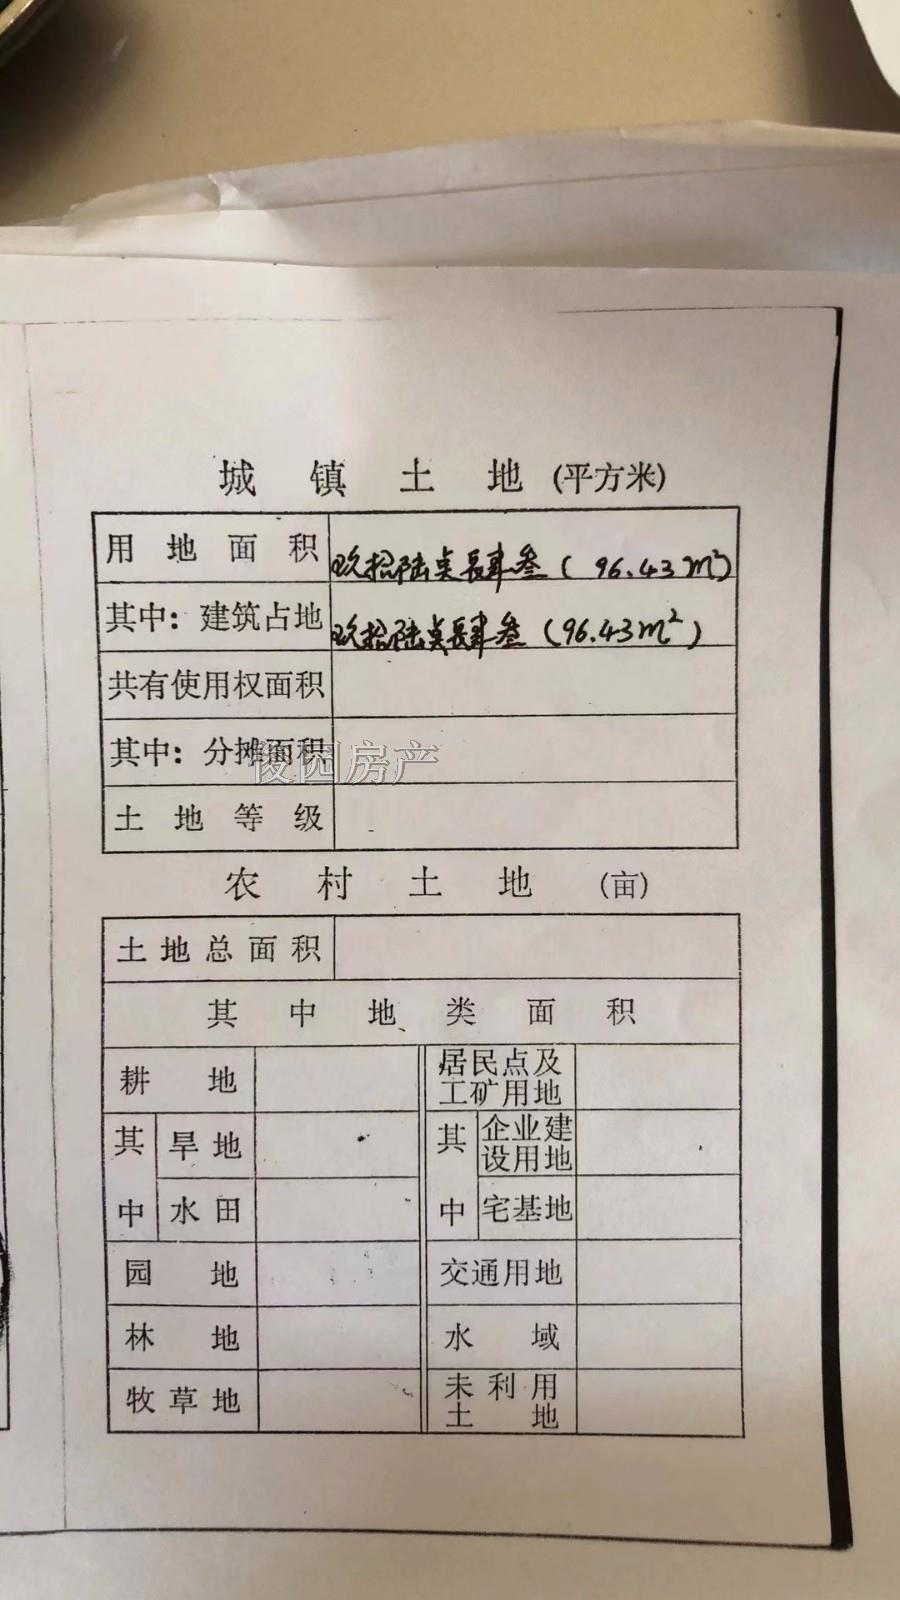 城镇土地(平方米)
用地面积 玖拾陆点肆叁(96.43m²)
其中:建筑占地 玖拾陆点肆叁(96.43m²)
共有使用权面积
其中:分摊面积
俊园房产
土地等级
农村土地(亩)
土地总面积
其中地类面积
耕地 居民点及工矿用地
其中 旱地 其中 企业建设用地
水田 宅基地
园地 交通用地
林地 水域
牧草地 未利用土地